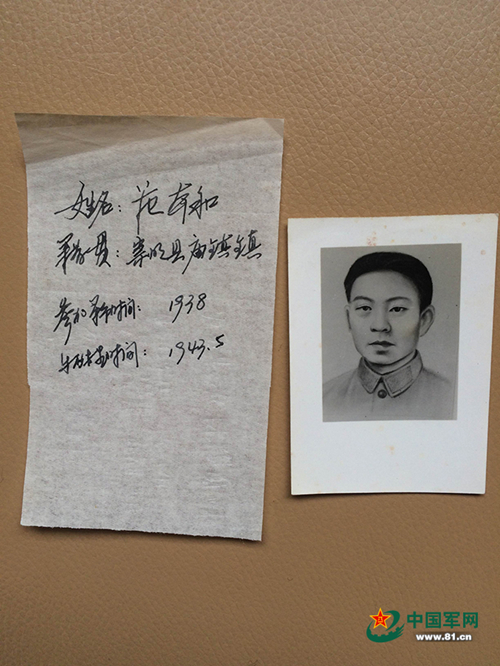 姓名：范 和
籍贯：崇明县庙镇镇
参加革命时间： 1938
牺牲时间： 1943.5
中国军网
www.81.cn